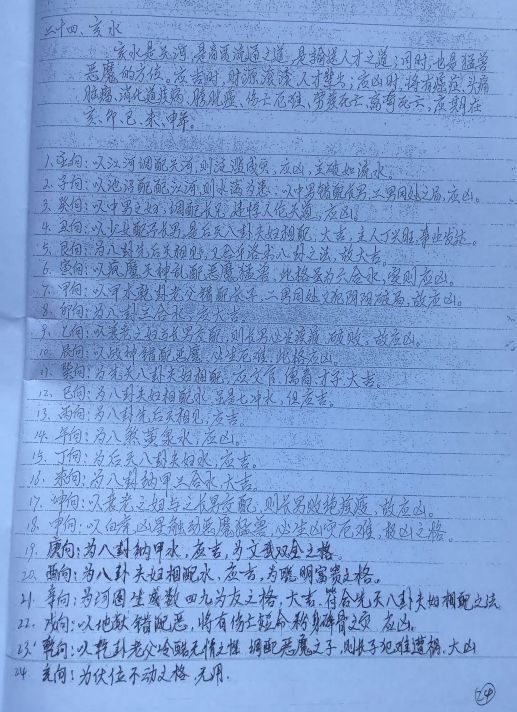 二十四、亥水
亥水是天河，是商贾流通之道，是输送人才之道；同时，也是猛兽
恶魔的方位。应吉时，财源滚滚，人才辈出；应凶时，将有癌症、头痛
脑瘤、消化道疾病、膀胱癌、伤亡厄难、劳疾死亡、应期在
亥、卯、巳、未、申年。
1、壬向：以江河调配天河，则泛滥成灾，应凶，主破如流水。
2、子向：以池沼配配江河，则水满为患；以中男错配长男，二男同处之局，应凶。
3、癸向：以中男之妇，调配长兄，是悖人伦夫道，应凶。
4、丑向：以少女配予长男，是后天八卦夫妇相配，大吉，主人丁兴旺，事业发达。
5、艮向：为八卦先后天相见，又合乎洛书八卦之法，故大吉。
6、寅向：以病魔灭神乱配恶魔猛兽，此格虽为六合水，实则应凶。
7、甲向：以甲木乾卦老父错配长子，二男同处又犯阴阳破局，故应凶。
8、卯向：为八卦三合水，应大吉。
9、乙向：以衰老之妇与长男交配，则长男必生疾病，破败，故应凶。
10、辰向：以战神错配恶魔，必生厄难，此格应凶。
11、巽向：为先天八卦夫妇相配，应文官、儒商、才子，大吉。
12、巳向：为八卦夫妇相配水，虽是七冲水，但应吉。
13、丙向：为八卦先后天相见，应吉。
14、午向：为八煞黄泉水，应凶。
15、丁向：为后天八卦夫妇水，应吉。
16、未向：为八卦纳甲三合水，大吉。
17、坤向：以衰老之妇与之长男交配，则长男败绝疾厄，故应凶。
18、申向：以白虎凶星触动恶魔猛兽，必生凶灾厄难，极凶之格。
19、庚向：为八卦纳甲水，应吉，为文武双全之格。
20、酉向：为八卦夫妇相配水，应吉，为聪明富贵之格。
21、辛向：为河图生成数四九为友之格，大吉，符合先天八卦夫妇相配之法
22、戌向：以地狱错配恶，将有伤亡短命粉身碎骨之灾，应凶。
23、乾向：以乾卦老父冷酷无情之性，调配恶魔之子，则长子犯难遭祸，大凶
24、亥向：为伏位不动之格，无用.
24